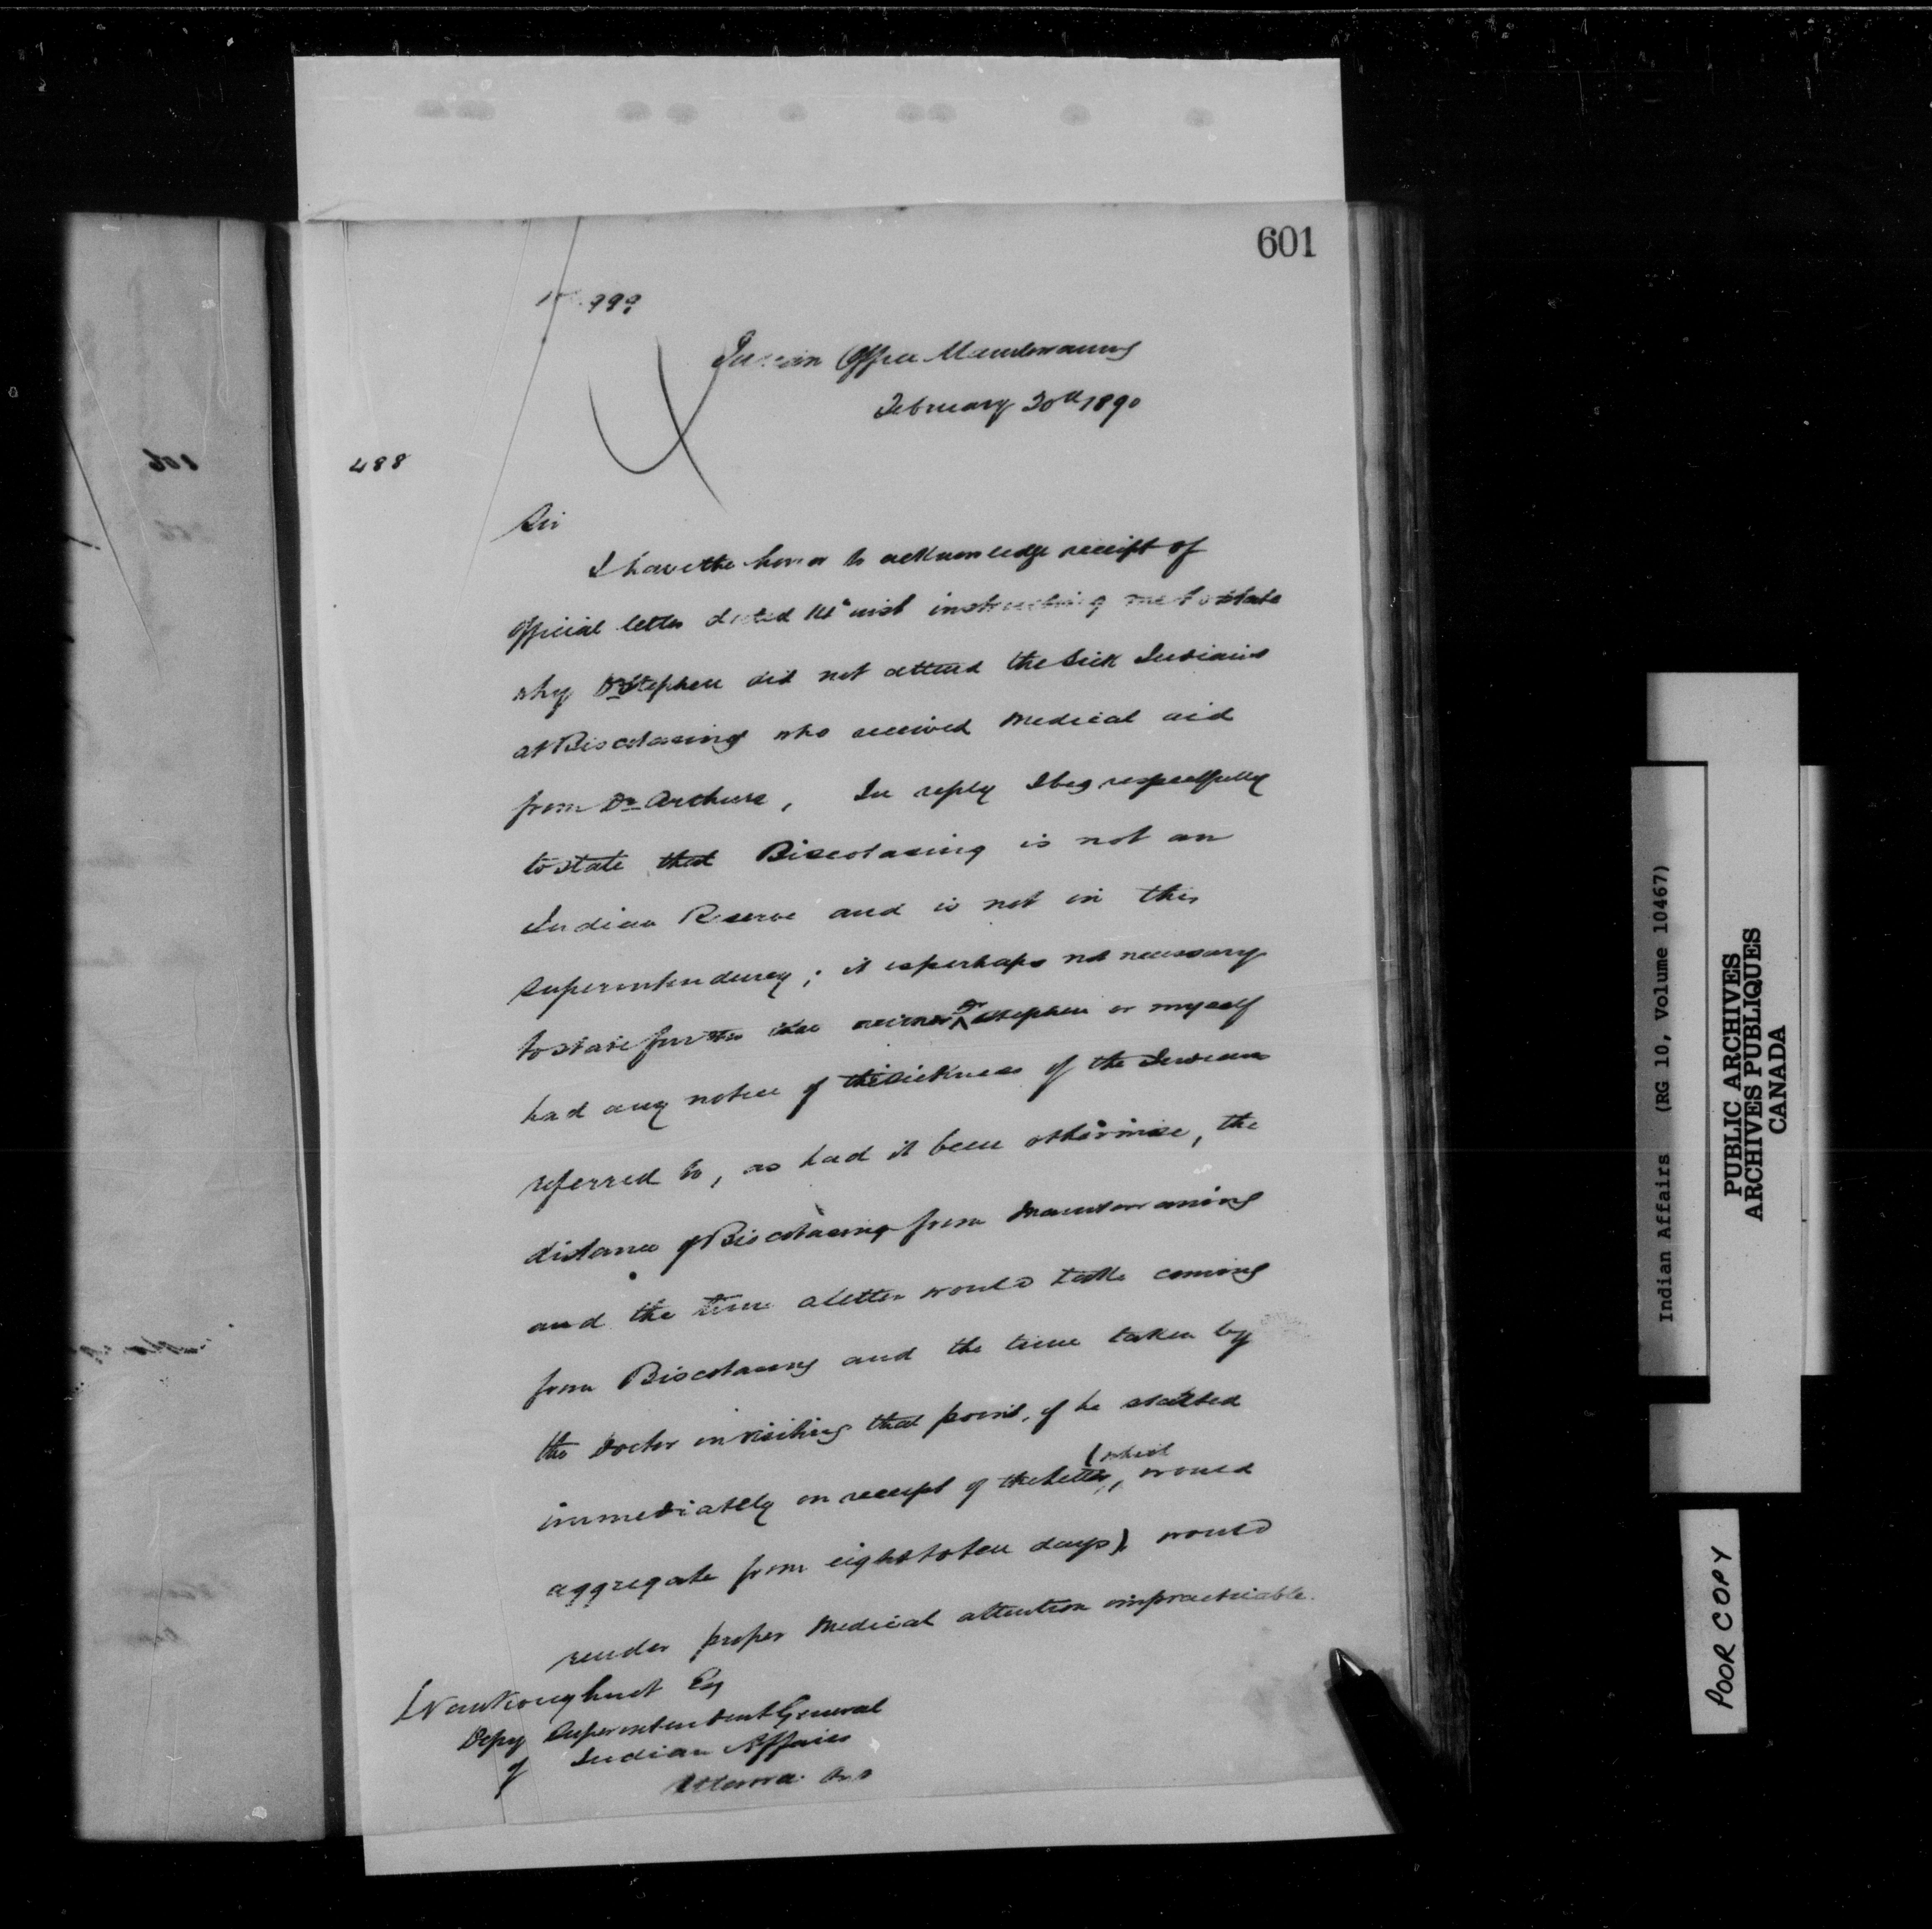 601
999
Indian Office Manitowaning
February 20th 1890
488
Sir
I have the honor to acknowledge receipt of
official letter dated 14th inst instructing me to state
why Dr Stephen did not attend the sick Indians
at Biscotasing who received medical aid
from Dr Arthurs, In reply I beg respectfully
to state that Biscotasing is not an
Indian Reserve and is not in this
superintendency; it is perhaps not necessary
to state further that neither Dr Stephen or myself
had any notice of the sickness of the Indians
referred to, as had it been otherwise, the
distance of Biscotasing from Manitowaning
and the time a letter would take coming
from Biscotasing and the time taken by
the Doctor in visiting that point, if he started
immediately on receipt of the letter, (which would
aggregate from eight to ten days), would
render proper medical attention impracticable.
L Vankoughnet Esq
Depy Superintendent General
of Indian Affairs
Ottawa Ont
Indian Affairs (RG 10, Volume 10467)
PUBLIC ARCHIVES
ARCHIVES PUBLIQUES
CANADA
POOR COPY